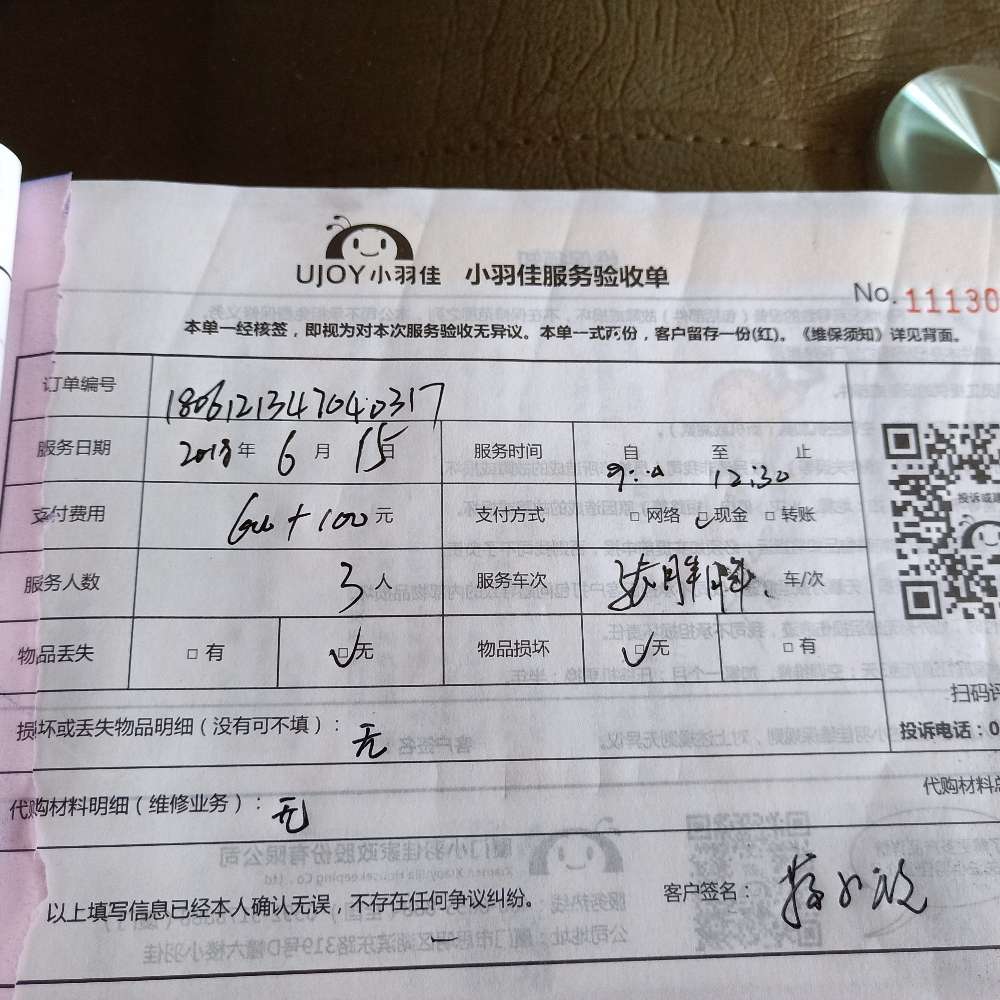 UJOY小羽佳 小羽佳服务验收单
No. 11130
本单一经核签，即视为对本次服务验收无异议。本单一式两份，客户留存一份(红)。《维保须知》详见背面。
订单编号 1806121347040317
服务日期 2018年 6月 15日 服务时间 自 9:00 至 12:30 止
支付费用 600+100元 支付方式 □网络 ☑现金 □转账
服务人数 3人 服务车次 车/次
物品丢失 □有 ☑无 物品损坏 ☑无 □有
投诉或
扫码评
投诉电话：0
损坏或丢失物品明细（没有可不填）：无
代购材料明细（维修业务）：无
代购材料总
以上填写信息已经本人确认无误，不存在任何争议纠纷。 客户签名：